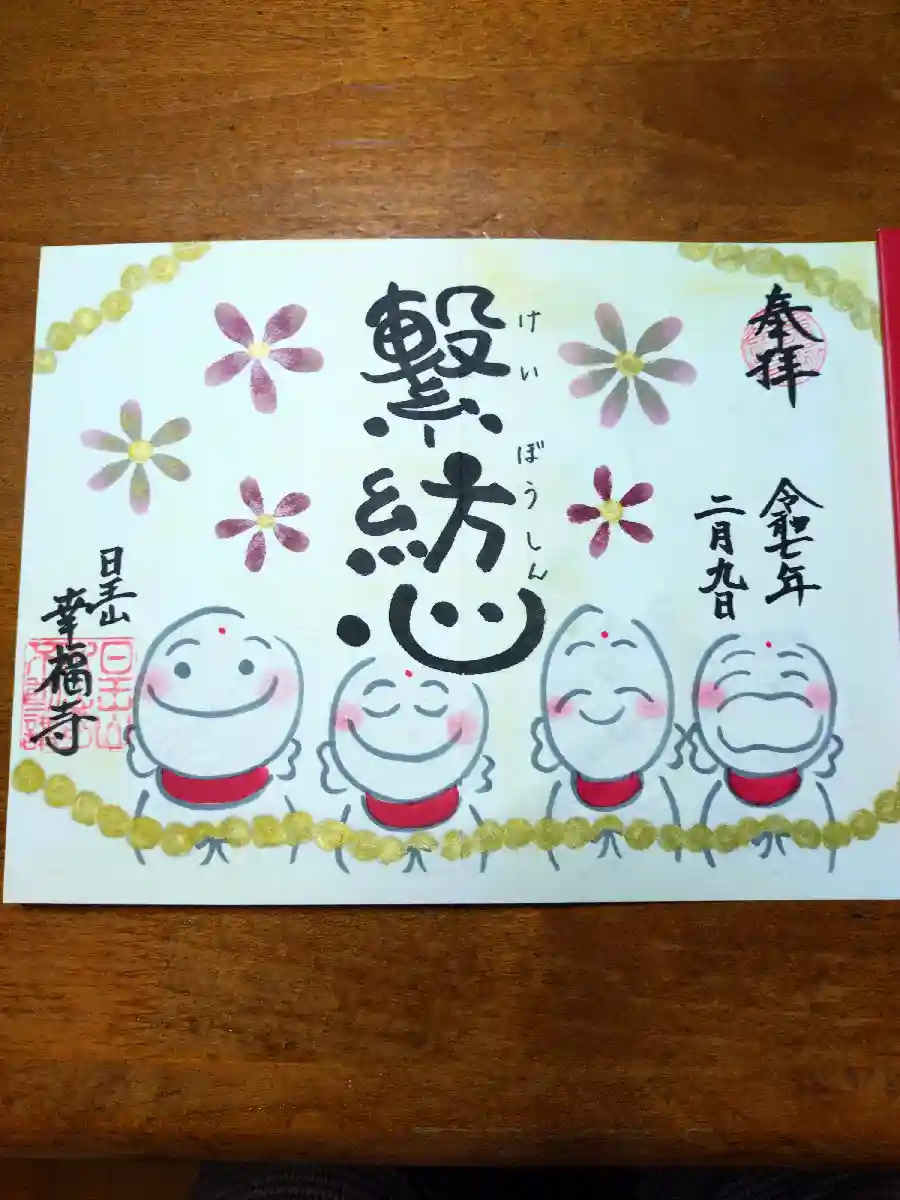 奉拝
令和七年
二月九日
繋紡心
けいぼうしん
日王山
幸福寺
日王山